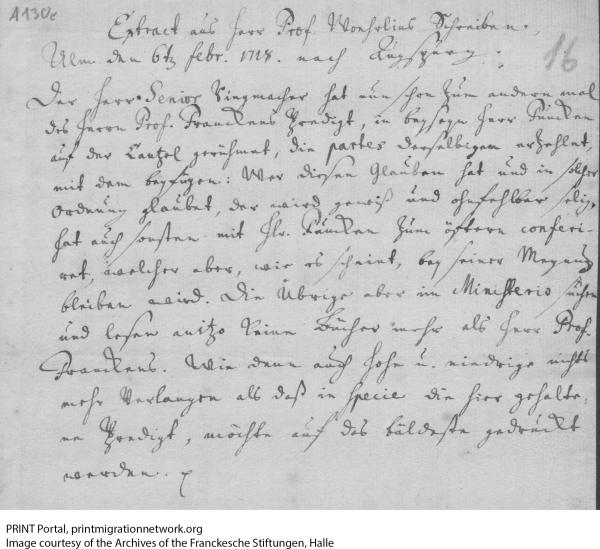 A 130c
Extract aus Herr Prof. Woehrlins Schreiben.
Ulm. den 6tz febr. 1718. nach Augspurg.
16
Der Herr Senior Ringmacher hat nun schon zum andern mal
des Herrn Prof. Franckens Predigt, in beyseyn Herr Funcken
auf der Cantzel gerühmet, die partes derselbigen erzehlet,
mit dem beyfügen: Wer diesen Glauben hat und in solcher
Ordnung glaubet, der wird gewiß und ohnfehlbar selig,
hat auch sonsten mit Hr. Funcken zum öftern conferi-
ret, welcher aber, wie es scheint, bey seiner Meynung
bleiben wird. Die Übrige aber im Ministerio suchen
und lesen anitzo keine Bücher mehr als Herr Prof.
Franckens. Wie denn auch hohe u. niedrige nichts
mehr Verlangen als daß in specie die hier gehalte-
ne Predigt, möchte auf das bäldeste gedruckt
werden.
PRINT Portal, printmigrationnetwork.org
Image courtesy of the Archives of the Franckesche Stiftungen, Halle